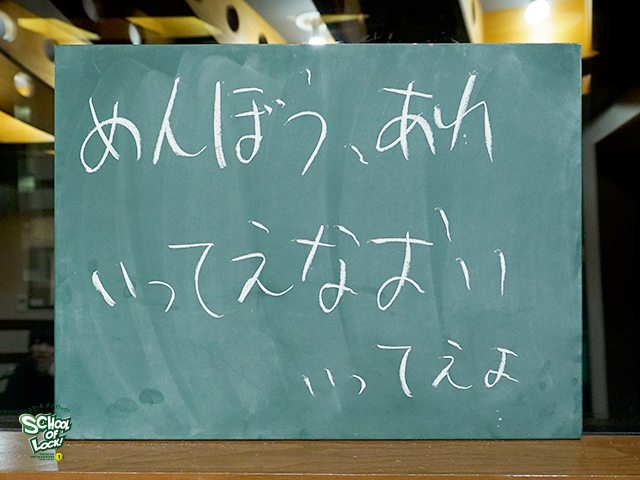 めんぼう、あれ
いってえなおい
いってえよ
SCHOOL
OF
LOCK!